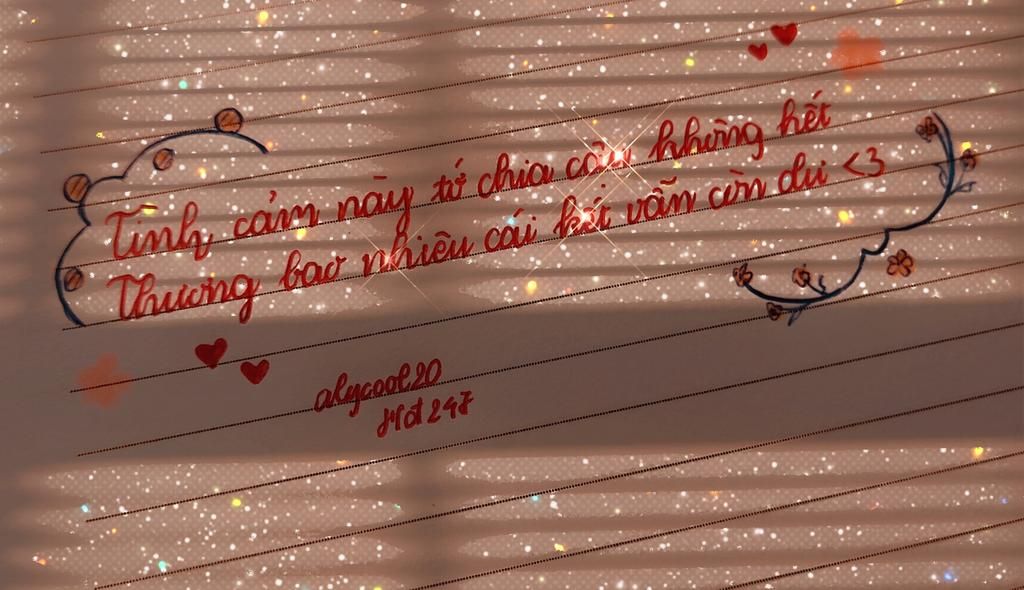 Tình cảm này tớ chia cậu không hết
Thương bao nhiêu cái kết vẫn còn dư <3
alycool20
Hot 247